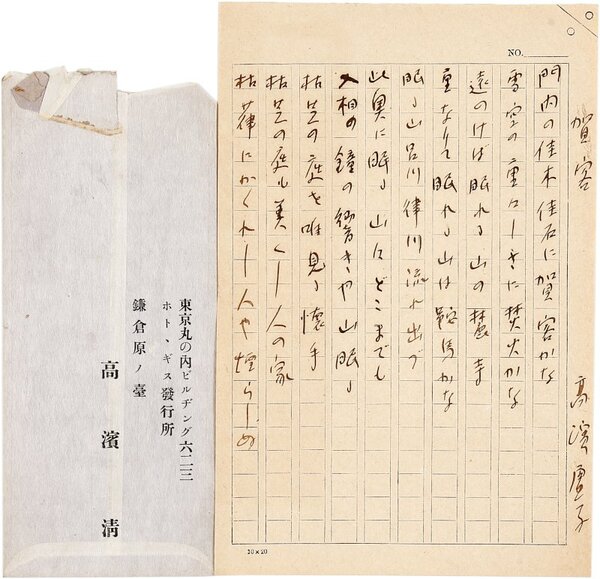 NO.
賀客 高濱虚子
門内の佳木佳石に賀客かな
雪空の重々しさに焚火かな
遠のけば眠れる山の麓寺
重なりて眠れる山は鞍馬かな
眠る山呂川律川流れ出づ
此奥に眠る山はどこまでも
入相の鐘の響きや山眠る
枯芝の庭を唯見る懐手
枯芝の庭も美くし人の家
枯葎にかくれし人や煙らしめ
10×20
東京丸の内ビルヂング六二三
ホトヽギス發行所
鎌倉原ノ臺
高濱清